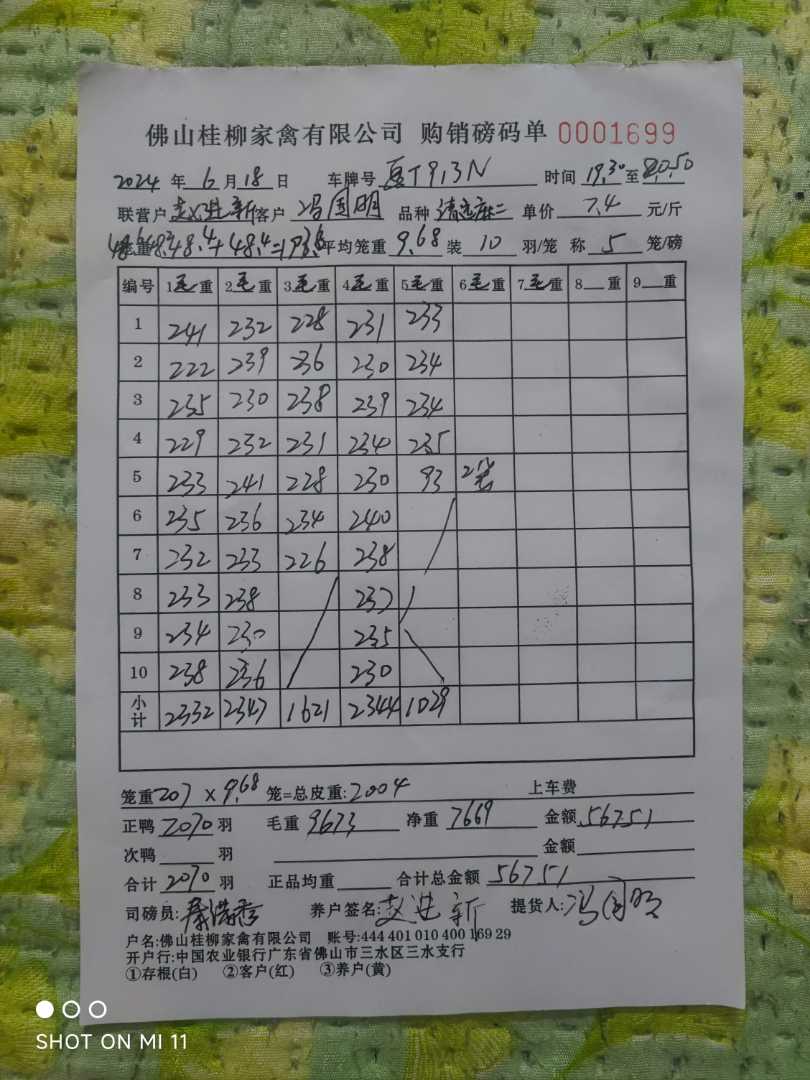 佛山桂柳家禽有限公司 购销磅码单 0001699
2024 年 6 月 18 日 车牌号 T913N 时间 19.30 至 20.50
联营户 赵进新 客户 冯国明 品种 清远麻二 单价 7.4 元/斤
48.4+48.4=193.6 平均笼重 9.68 装 10 羽/笼 称 5 笼/磅
编号 1毛重 2毛重 3毛重 4毛重 5毛重 6毛重 7毛重 8 重 9 重
1 241 232 228 231 233
2 222 239 236 230 234
3 235 230 238 239 234
4 229 232 231 234 235
5 233 241 228 230 93 2笼
6 235 236 234 240
7 232 233 226 238
8 233 238 237
9 234 230 235
10 238 236 230
小计 2332 2347 1621 2344 1029
笼重 207 × 9.68 笼=总皮重: 2004 上车费
正鸭 2070 羽 毛重 9673 净重 7669 金额 56751
次鸭 羽 金额
合计 2070 羽 正品均重 合计总金额 56751
司磅员: 养户签名: 赵进新 提货人: 冯国明
户名:佛山桂柳家禽有限公司 账号:444 401 010 400 169 29
开户行:中国农业银行广东省佛山市三水区三水支行
①存根(白) ②客户(红) ③养户(黄)
SHOT ON MI 11